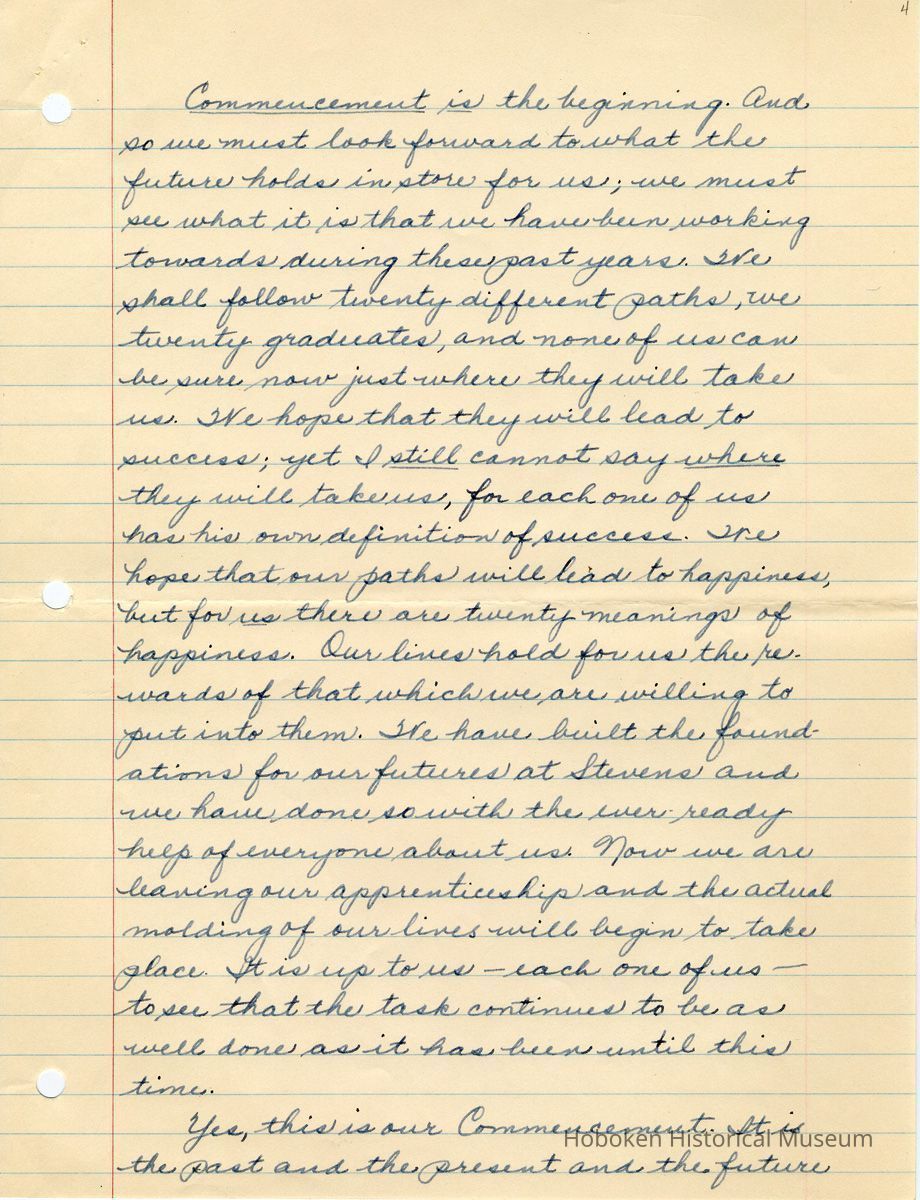 4
Commencement is the beginning. And
so we must look forward to what the
future holds in store for us; we must
see what it is that we have been working
towards during these past years. We
shall follow twenty different paths, we
twenty graduates, and none of us can
be sure now just where they will take
us. We hope that they will lead to
success; yet I still cannot say where
they will take us, for each one of us
has his own definition of success. We
hope that our paths will lead to happiness,
but for us there are twenty meanings of
happiness. Our lives hold for us the re-
wards of that which we are willing to
put into them. We have built the found-
ations for our futures at Stevens and
we have done so with the ever-ready
help of everyone about us. Now we are
leaving our apprenticeship and the actual
molding of our lives will begin to take
place. It is up to us – each one of us –
to see that the task continues to be as
well done as it has been until this
time.
Yes, this is our Commencement. It is
Hoboken Historical Museum
the past and the present and the future